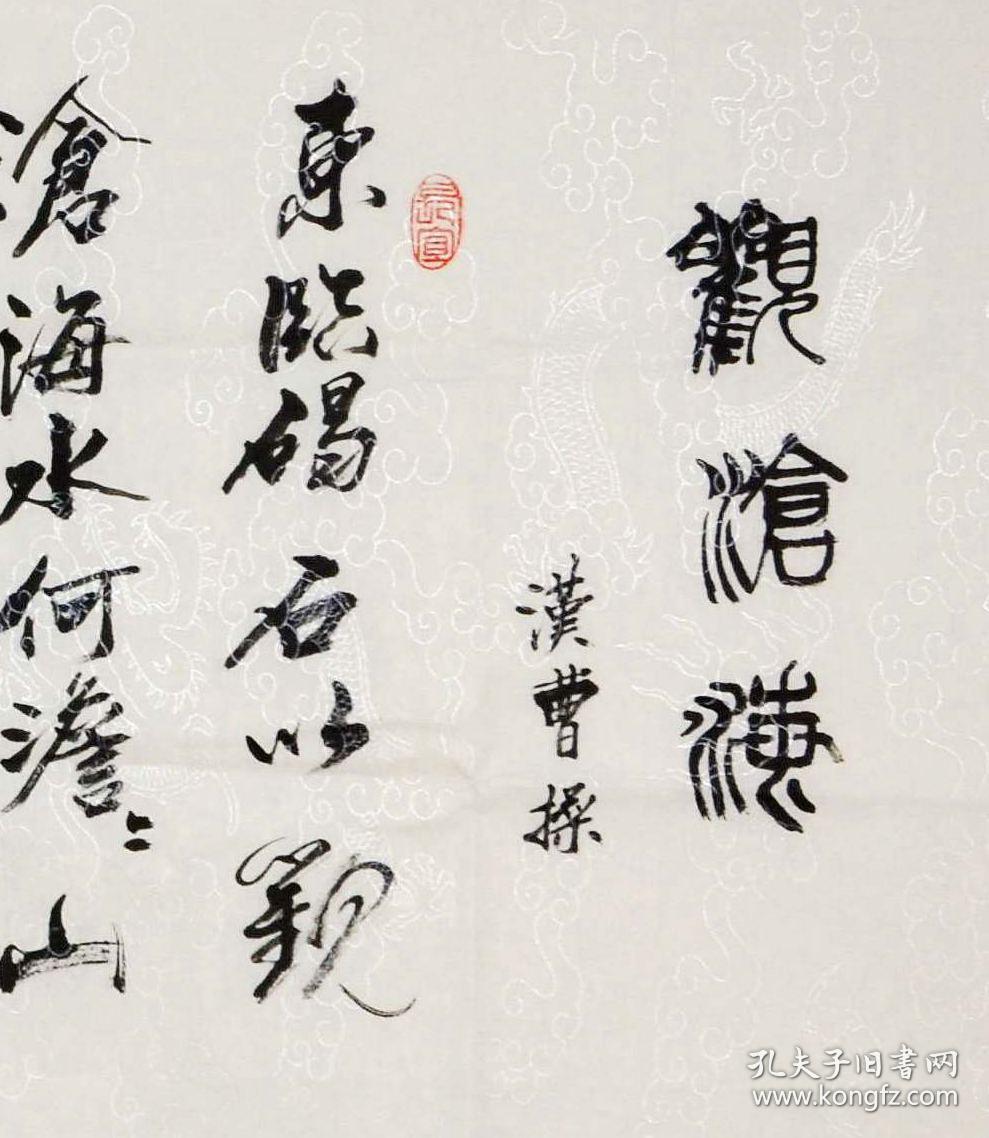 觀滄海
漢曹操
東臨碣石以觀
滄海水何澹〻山
孔夫子旧书网
www.kongfz.com